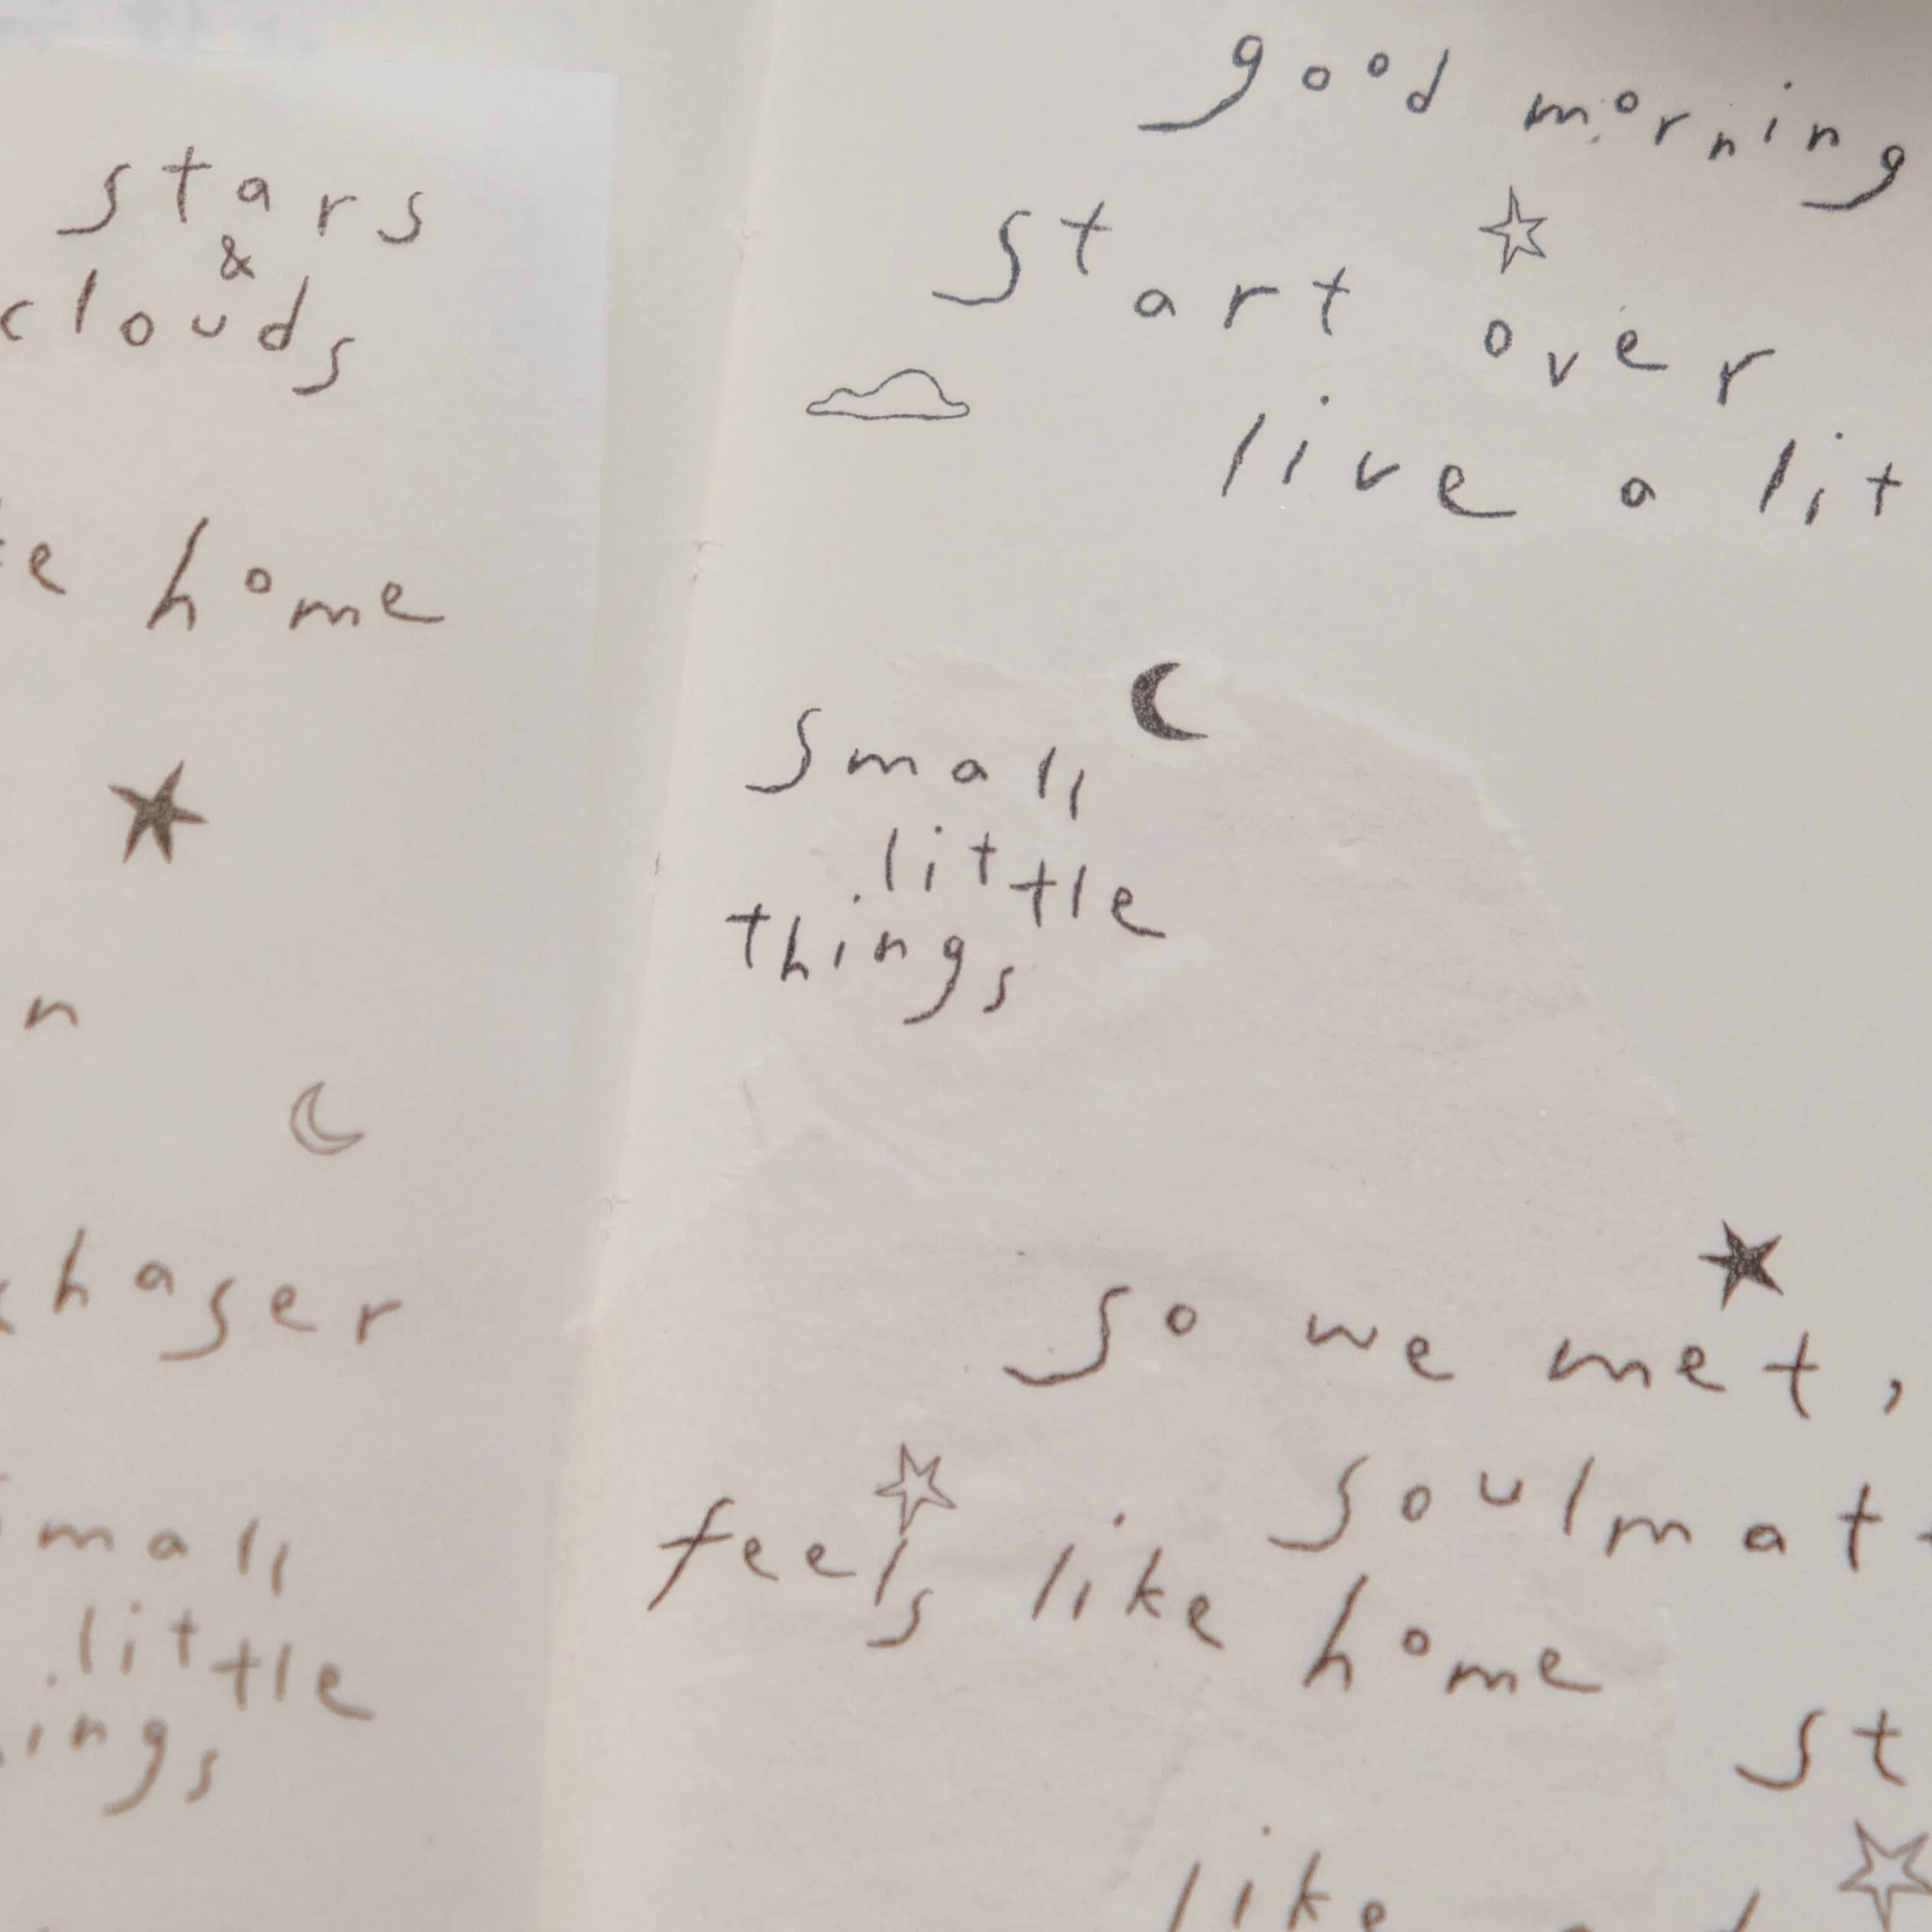 stars
&
clouds
home
small
little
good morning
start over
live a lit
small
little
things
so we met,
soulmat
feels like home
st
like